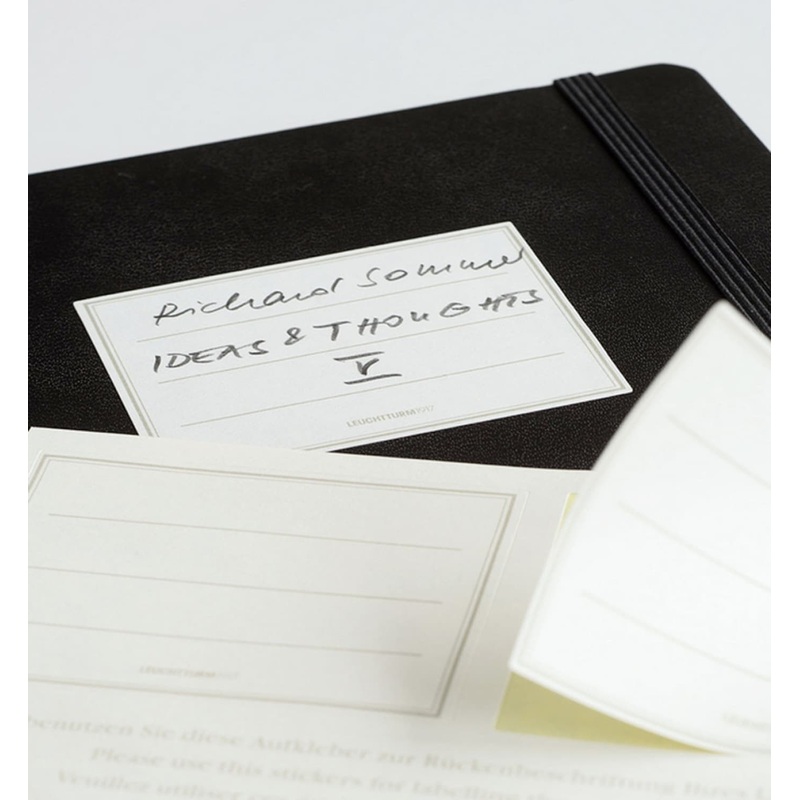 Richard Sommer
IDEAS & THOUGHTS
V
LEUCHTTURM1917
LEUCHTTURM1917
benutzen Sie diese Aufkleber zur Rückenbeschriftung Ihres
Please use this stickers for labelling
Veuillez utiliser